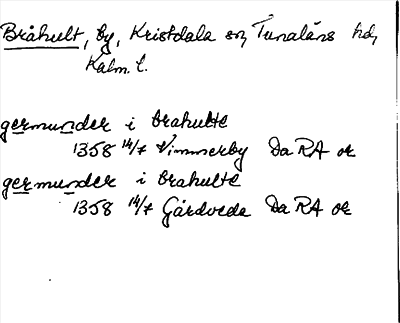 Bråhult, by, Kristdala sn, Tunaläns hd,
Kalm. l.
germunder i brahulte
1358 14/7 Vimmerby Da RA or
germunder i brahulte
1358 14/7 Gårdveda Da RA or